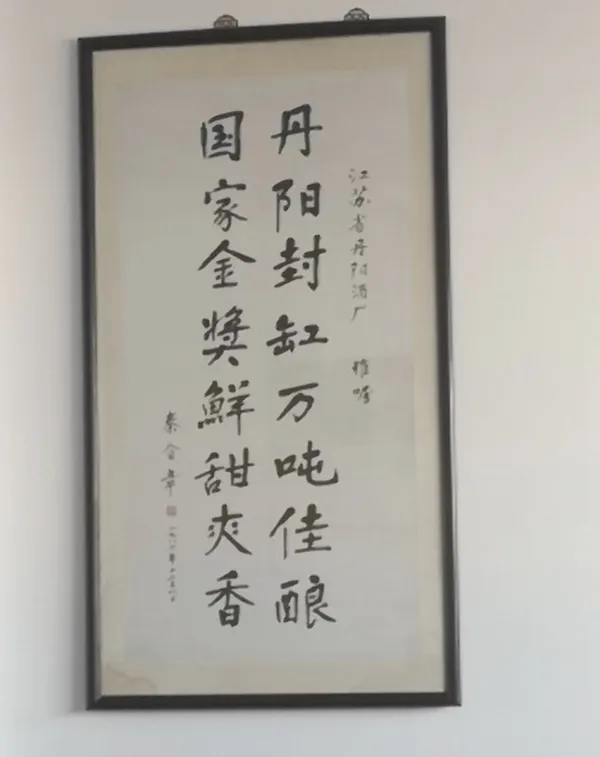 江苏省丹阳酒厂 雅嘱
丹阳封缸万吨佳酿
国家金奖鲜甜爽香
秦含章